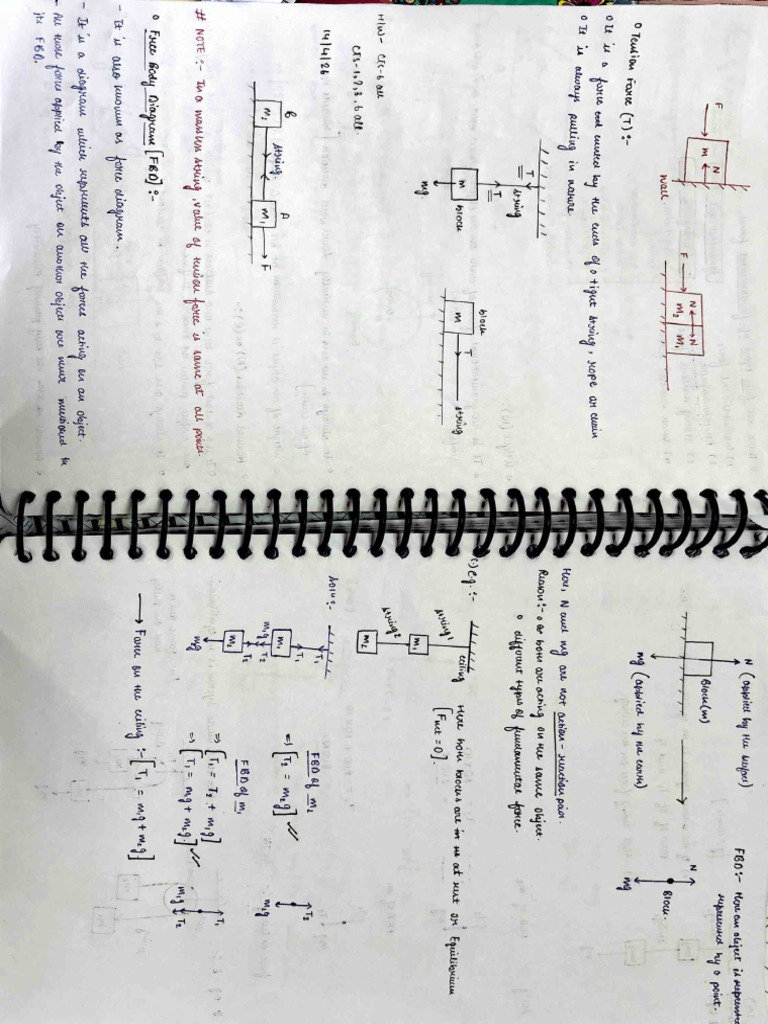 F
N
m
wall
F
N
N
m2
m1
o Tension Force (T) :-
o It is a force exerted by the ends of a tight string, rope or chain
o It is always pulling in nature.
T
T
string
m
block
mg
block
m
T
string
H/W - Ex-6 all
Ex-1,2,3,6 all.
14/4/26
B
m2
string.
A
m1
F
# NOTE :- In a massless string, value of tension force is same at all points.
o Free Body Diagram [FBD] :-
- It is also known as force diagram.
- It is a diagram which represents all the forces acting on an object.
- All those forces applied by the object on another object are never mentioned in
its FBD.
N (applied by the surface)
Block(m)
mg (applied by the earth)
FBD :- Here an object is represented
represented by a point.
N
Block.
mg
Here, N and mg are not action-reaction pair.
Reason :- o as both are acting on the same object.
o different types of fundamental force.
(i) e.g. :-
ceiling
string 1
m1
string 2
m2
Here both blocks are in at rest or Equilibrium
[Fnet = 0].
Soln :-
T1
T1
m1
m1g
T2
T2
m2
m2g
FBD of m2
=> [T2 = m2g]
T2
m2g
FBD of m1
=> [T1 = T2 + m1g]
=> [T1 = m1g + m2g]
T1
m1g
T2
→ Force on the ceiling :- [T1 = m1g + m2g]